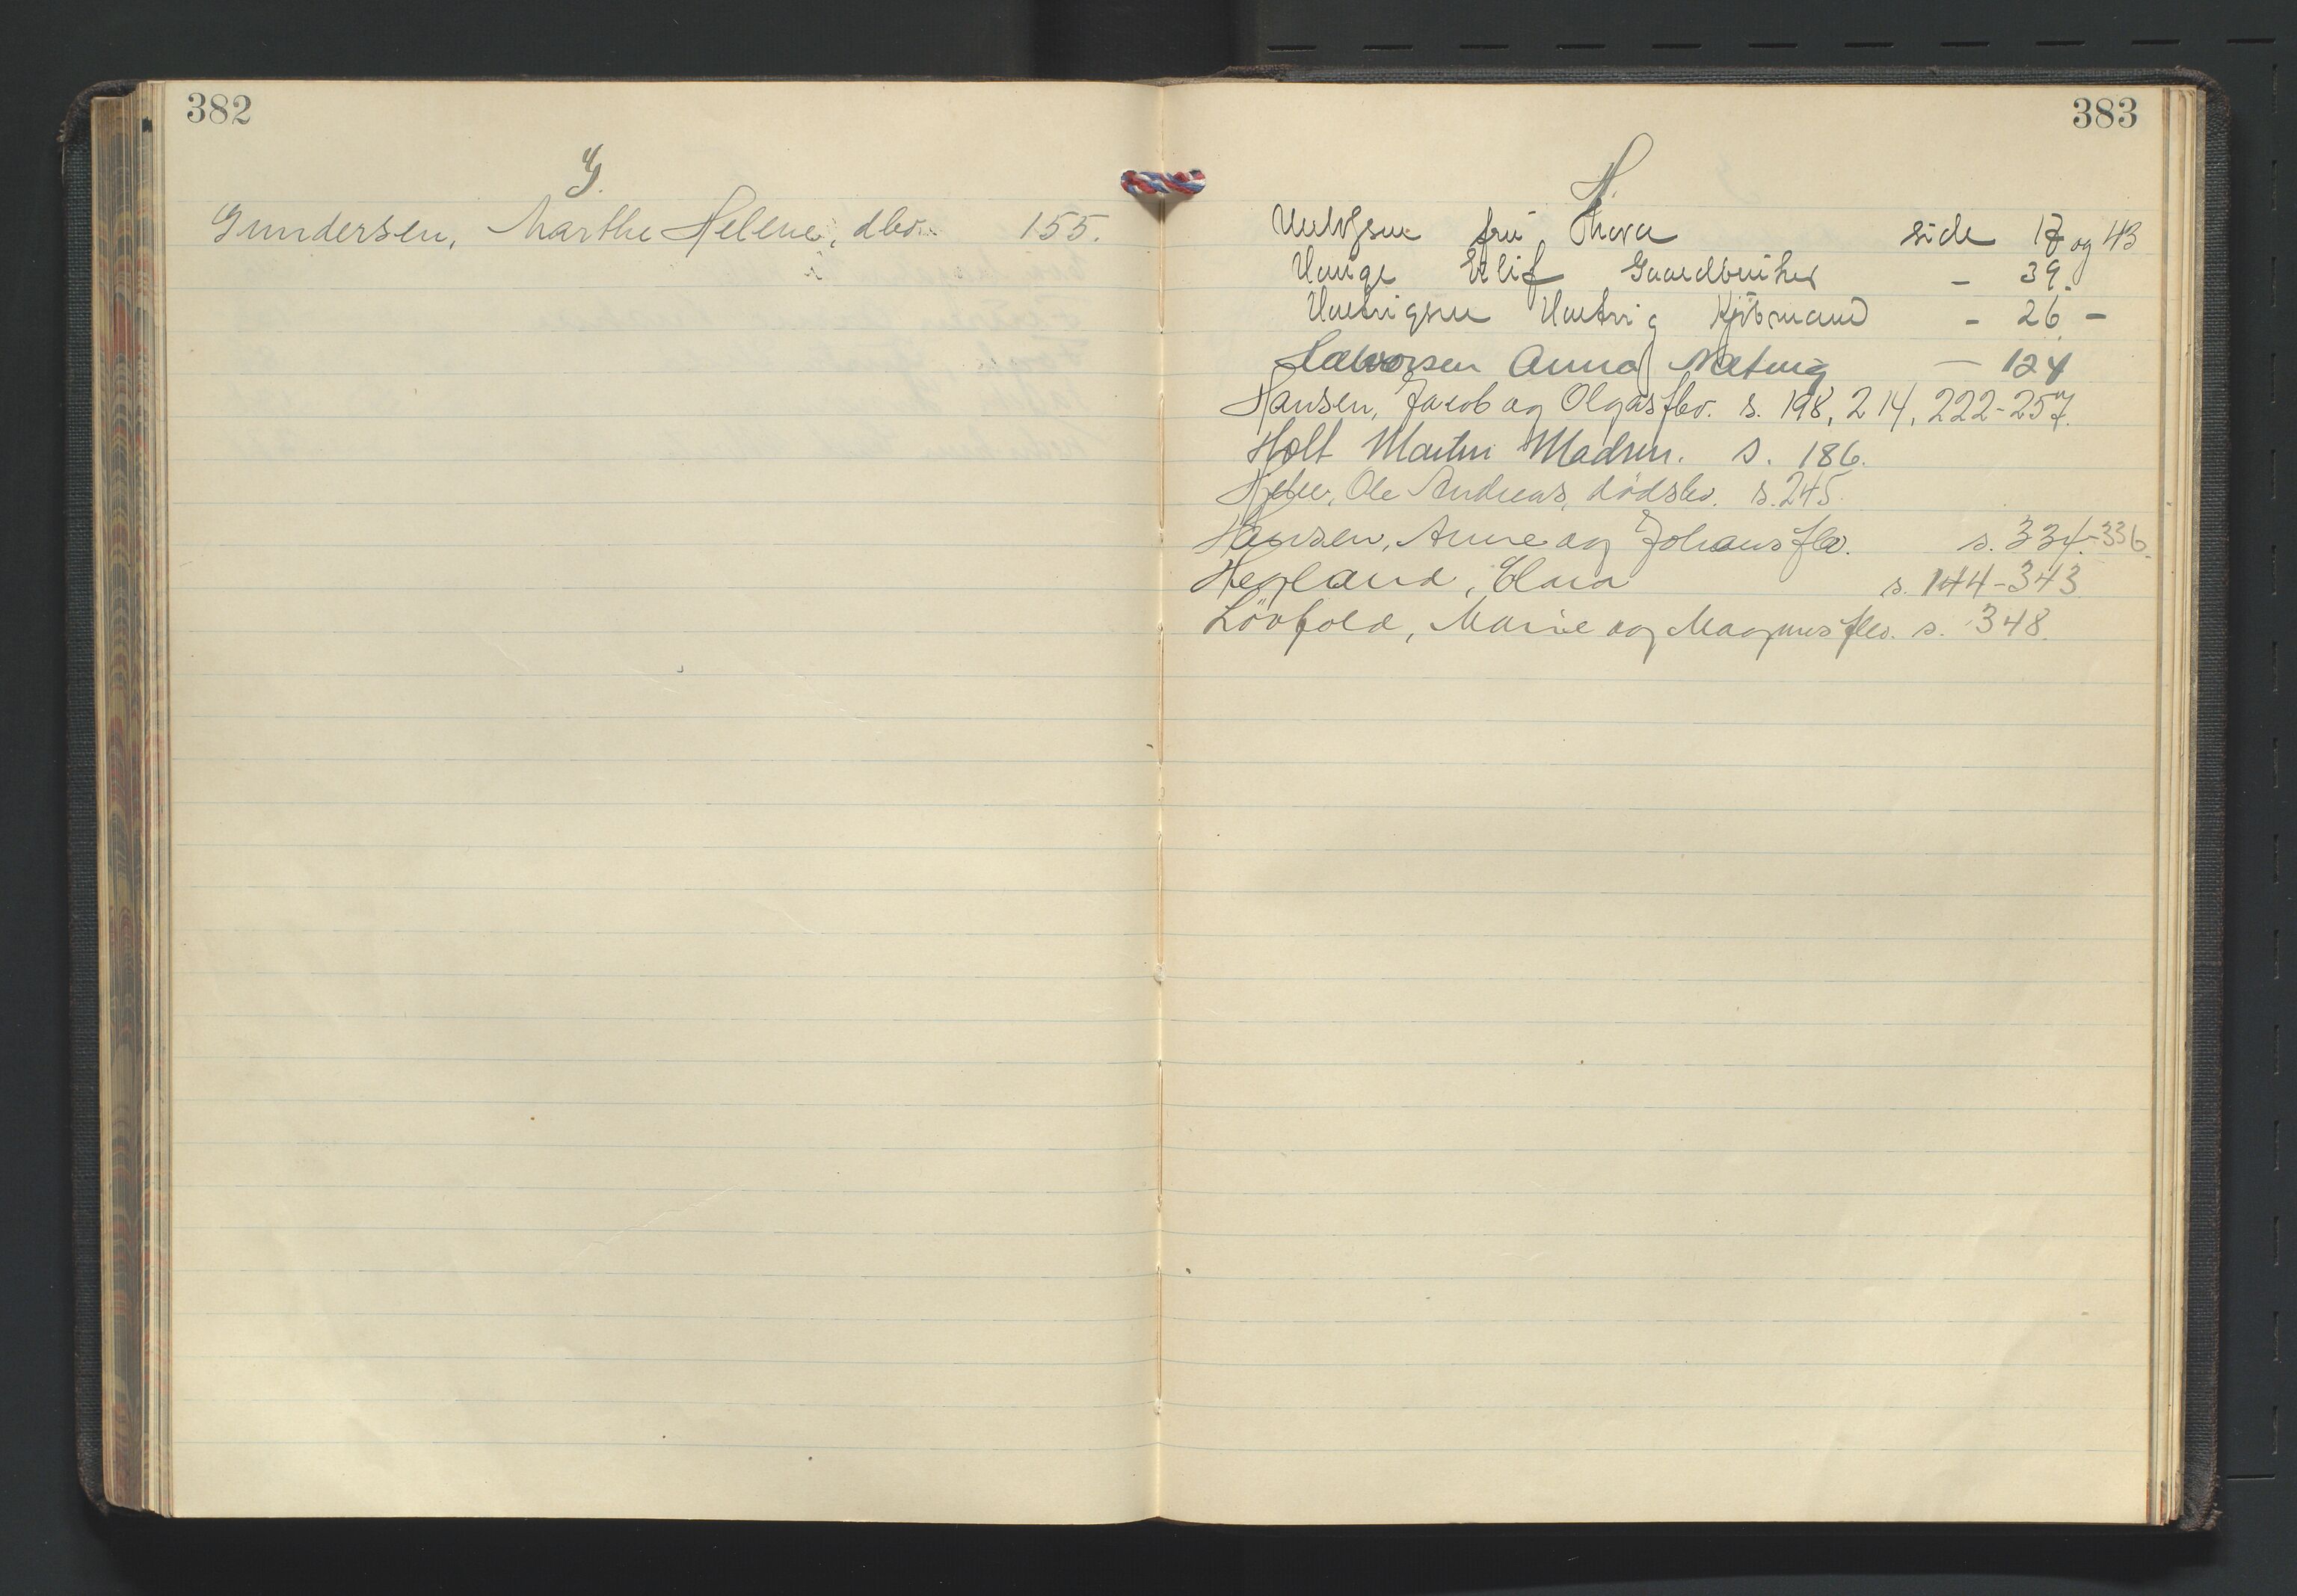 382
G.
Gundersen, Marthe Helene, dbo. 155.
383
H.
fru Thora side 17 og 43
Hauge Eilif Gaardbruker - 39.
Hartvigsen Hartvig Kjöbmand - 26 -
Halvorsen Anna — 124
Hansen, Jacob og Olgas fbo. s. 198, 214, 222-257.
Holt Martin Madsen. s. 186.
Ole Andreas, dödsbo. s. 245.
Hansen, Anne og Johans fbo. s. 334.-336.
Hegland, Clara s. 144-343
Lövfold, Marie og Magnus fbo. s. 348.